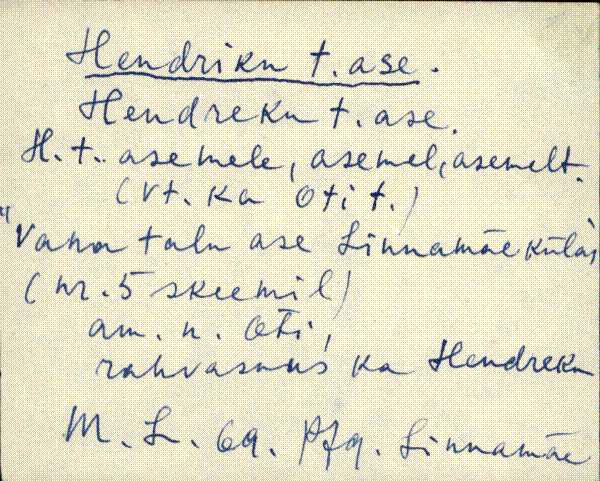 Hendriku t. ase.
Hendreku t. ase.
H. t. asemele, asemel, asemelt.
(vt. ka Oti t.)
"Vana talu ase Linnamäe külas
(nr. 5 skeemil)
am. n. Oti,
rahvasuus ka Hendreku
M. L. 69. Linnamäe